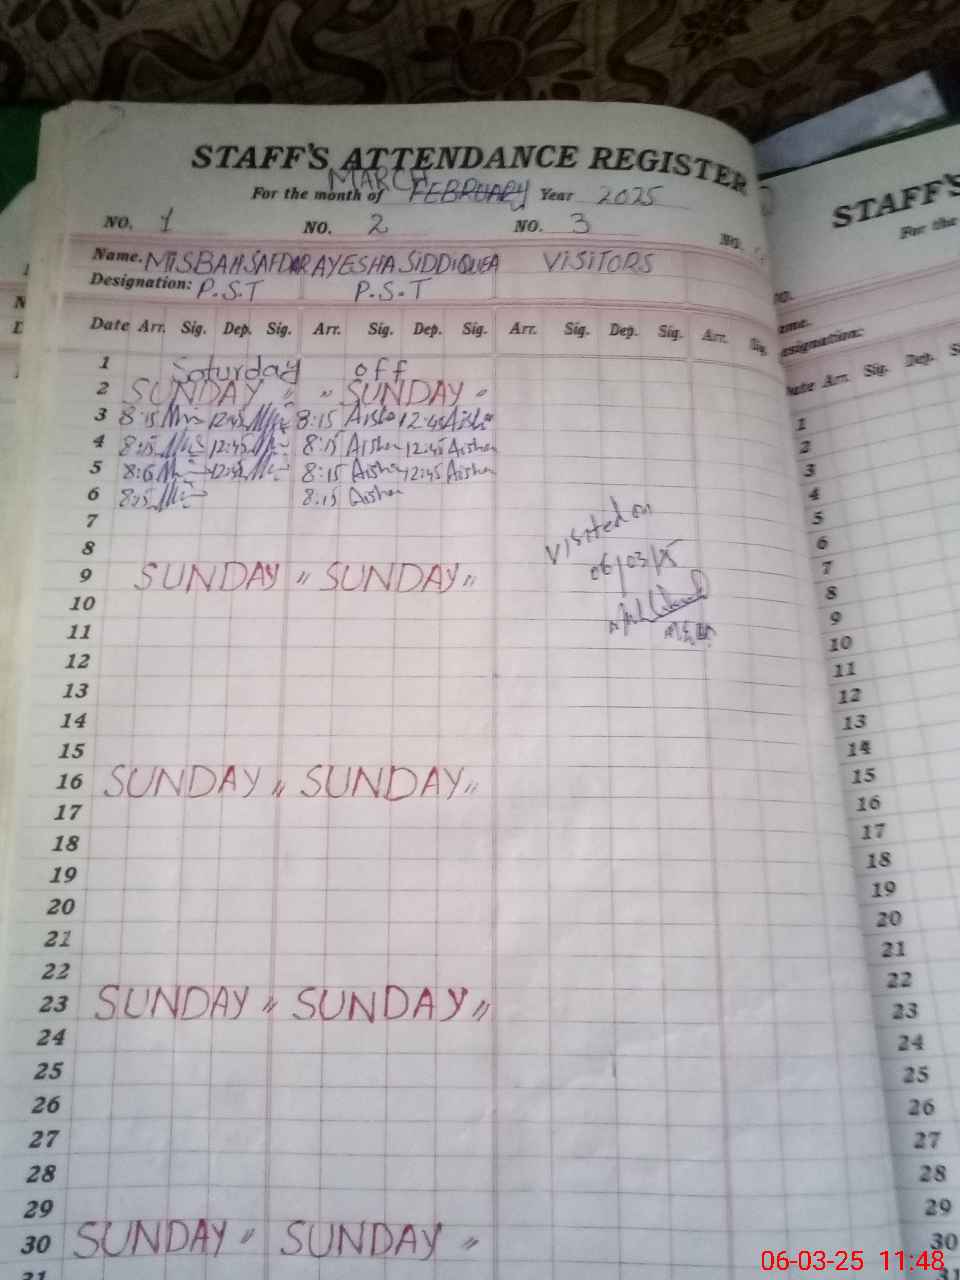 STAFF'S ATTENDANCE REGISTER
MARCH
For the month of FEBRUARY Year 2025
NO. 1 NO. 2 NO. 3 NO.
Name. MISBAH SAFDAR AYESHA SIDDIQUEA VISITORS
Designation: P.S.T P.S.T
Date Arr. Sig. Dep. Sig. Arr. Sig. Dep. Sig. Arr. Sig. Dep. Sig. Arr. Sig.
1 Saturday off
2 SUNDAY " " SUNDAY "
3 8:15 12:45 8:15 Aisha 12:45 Aisha
4 8:15 12:45 8:15 Aisha 12:45 Aisha
5 12:45 8:15 Aisha 12:45 Aisha
6 8:15 Aisha
7
8
9 SUNDAY " SUNDAY "
10
11
12
13
14
15
16 SUNDAY " SUNDAY "
17
18
19
20
21
22
23 SUNDAY " SUNDAY "
24
25
26
27
28
29
30 SUNDAY " SUNDAY "
31
visited on
06/03/25
STAFF'S
For the
NO.
Name.
Designation:
Date Arr. Sig. Dep.
1
2
3
4
5
6
7
8
9
10
11
12
13
14
15
16
17
18
19
20
21
22
23
24
25
26
27
28
29
30
31
06-03-25 11:48